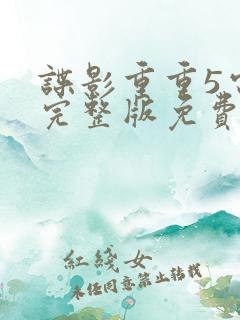 諜影重重5
完整版免費
紅綫女
未經同意禁止轉載